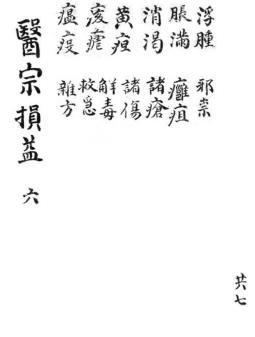 浮腫 邪祟
脹滿 癰疽
消渴 諸瘡
黃疸 諸傷
痎瘧 解毒
救急
瘟疫 雜方
醫宗損益 六
共七